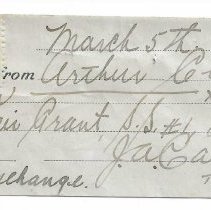 March 5th
from Arthur C
Grant S.S. #1
J. a. Ca
change.